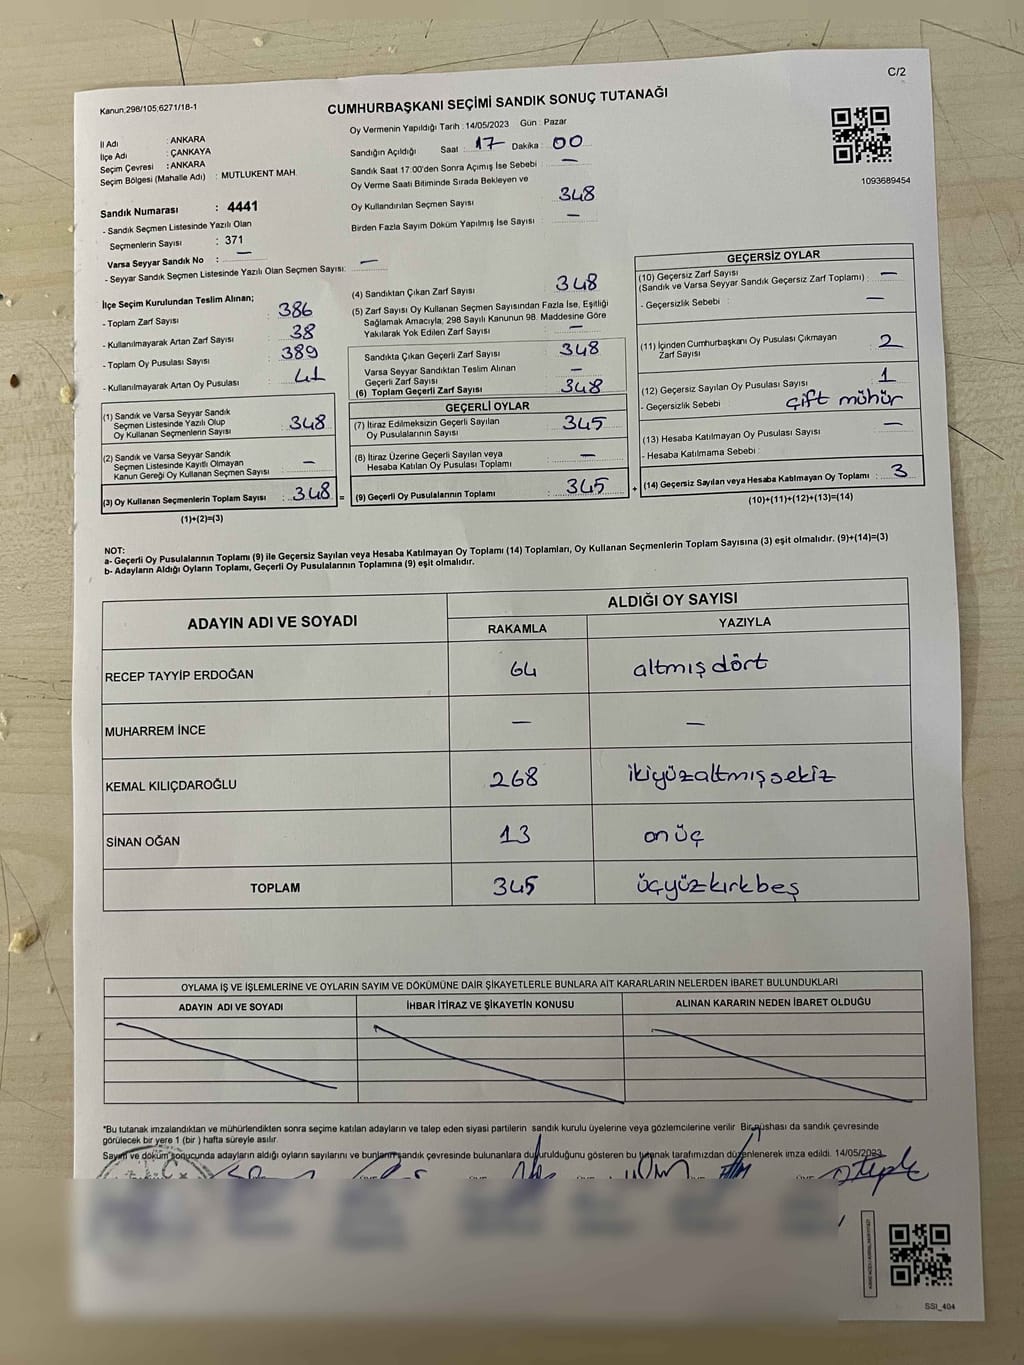 C/2
Kanun,298/105,6271/18-1
CUMHURBAŞKANI SEÇİMİ SANDIK SONUÇ TUTANAĞI
Oy Vermenin Yapıldığı Tarih : 14/05/2023 Gün : Pazar
İl Adı : ANKARA
İlçe Adı : ÇANKAYA
Seçim Çevresi : ANKARA
Seçim Bölgesi (Mahalle Adı) : MUTLUKENT MAH.
Sandığın Açıldığı Saat : 17 Dakika : 00
Sandık Saat 17:00'den Sonra Açımış İse Sebebi : —
Oy Verme Saati Bitiminde Sırada Bekleyen ve
Oy Kullandırılan Seçmen Sayısı 348
Birden Fazla Sayım Döküm Yapılmış İse Sayısı : —
1093689454
Sandık Numarası : 4441
- Sandık Seçmen Listesinde Yazılı Olan
Seçmenlerin Sayısı : 371
Varsa Seyyar Sandık No : —
- Seyyar Sandık Seçmen Listesinde Yazılı Olan Seçmen Sayısı: —
İlçe Seçim Kurulundan Teslim Alınan;
- Toplam Zarf Sayısı : 386
- Kullanılmayarak Artan Zarf Sayısı : 38
- Toplam Oy Pusulası Sayısı : 389
- Kullanılmayarak Artan Oy Pusulası : 41
(1) Sandık ve Varsa Seyyar Sandık
Seçmen Listesinde Yazılı Olup
Oy Kullanan Seçmenlerin Sayısı : 348
(2) Sandık ve Varsa Seyyar Sandık
Seçmen Listesinde Kayıtlı Olmayan
Kanun Gereği Oy Kullanan Seçmen Sayısı : —
(3) Oy Kullanan Seçmenlerin Toplam Sayısı : 348 =
(1)+(2)=(3)
(4) Sandıktan Çıkan Zarf Sayısı : 348
(5) Zarf Sayısı Oy Kullanan Seçmen Sayısından Fazla İse, Eşitliği
Sağlamak Amacıyla; 298 Sayılı Kanunun 98. Maddesine Göre
Yakılarak Yok Edilen Zarf Sayısı : —
Sandıkta Çıkan Geçerli Zarf Sayısı : 348
Varsa Seyyar Sandıktan Teslim Alınan
Geçerli Zarf Sayısı : —
(6) Toplam Geçerli Zarf Sayısı : 348
GEÇERLİ OYLAR
(7) İtiraz Edilmeksizin Geçerli Sayılan
Oy Pusulalarının Sayısı : 345
(8) İtiraz Üzerine Geçerli Sayılan veya
Hesaba Katılan Oy Pusulası Toplamı : —
(9) Geçerli Oy Pusulalarının Toplamı : 345 +
GEÇERSİZ OYLAR
(10) Geçersiz Zarf Sayısı
(Sandık ve Varsa Seyyar Sandık Geçersiz Zarf Toplamı) : —
- Geçersizlik Sebebi : —
(11) İçinden Cumhurbaşkanı Oy Pusulası Çıkmayan
Zarf Sayısı : 2
(12) Geçersiz Sayılan Oy Pusulası Sayısı : 1
- Geçersizlik Sebebi : çift mühür
(13) Hesaba Katılmayan Oy Pusulası Sayısı : —
- Hesaba Katılmama Sebebi :
(14) Geçersiz Sayılan veya Hesaba Katılmayan Oy Toplamı : 3
(10)+(11)+(12)+(13)=(14)
NOT:
a- Geçerli Oy Pusulalarının Toplamı (9) ile Geçersiz Sayılan veya Hesaba Katılmayan Oy Toplamı (14) Toplamları, Oy Kullanan Seçmenlerin Toplam Sayısına (3) eşit olmalıdır. (9)+(14)=(3)
b- Adayların Aldığı Oyların Toplamı, Geçerli Oy Pusulalarının Toplamına (9) eşit olmalıdır.
ADAYIN ADI VE SOYADI ALDIĞI OY SAYISI
RAKAMLA YAZIYLA
RECEP TAYYİP ERDOĞAN 64 altmış dört
MUHARREM İNCE — —
KEMAL KILIÇDAROĞLU 268 ikiyüzaltmışsekiz
SİNAN OĞAN 13 on üç
TOPLAM 345 üçyüzkırkbeş
OYLAMA İŞ VE İŞLEMLERİNE VE OYLARIN SAYIM VE DÖKÜMÜNE DAİR ŞİKAYETLERLE BUNLARA AİT KARARLARIN NELERDEN İBARET BULUNDUKLARI
ADAYIN ADI VE SOYADI İHBAR İTİRAZ VE ŞİKAYETİN KONUSU ALINAN KARARIN NEDEN İBARET OLDUĞU
*Bu tutanak imzalandıktan ve mühürlendikten sonra seçime katılan adayların ve talep eden siyasi partilerin sandık kurulu üyelerine veya gözlemcilerine verilir. Bir nüshası da sandık çevresinde
görülecek bir yere 1 (bir ) hafta süreyle asılır.
Sayım ve döküm sonucunda adayların aldığı oyların sayılarını ve bunların sandık çevresinde bulunanlara duyurulduğunu gösteren bu tutanak tarafımızdan düzenlenerek imza edildi. 14/05/2023
SSI_404